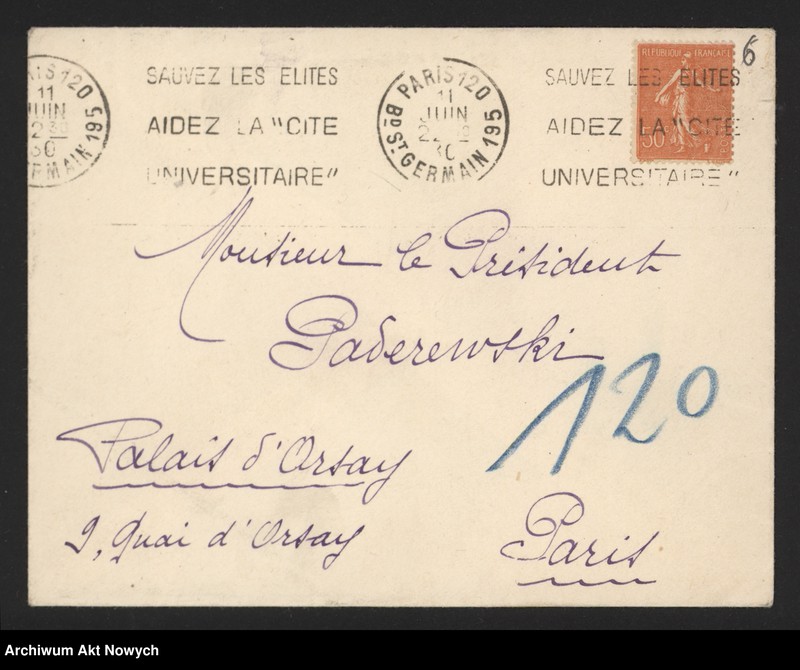 6
RÉPUBLIQUE FRANÇAISE
50
PARIS 120
11
JUIN
30
Bd St GERMAIN 195
SAUVEZ LES ELITES
AIDEZ LA "CITE
UNIVERSITAIRE"
PARIS 120
11
JUIN
30
Bd St GERMAIN 195
SAUVEZ LES ELITES
AIDEZ LA "CITE
UNIVERSITAIRE"
Monsieur le Président
Paderewski
120
Palais d'Orsay
9, Quai d'Orsay
Paris
Archiwum Akt Nowych